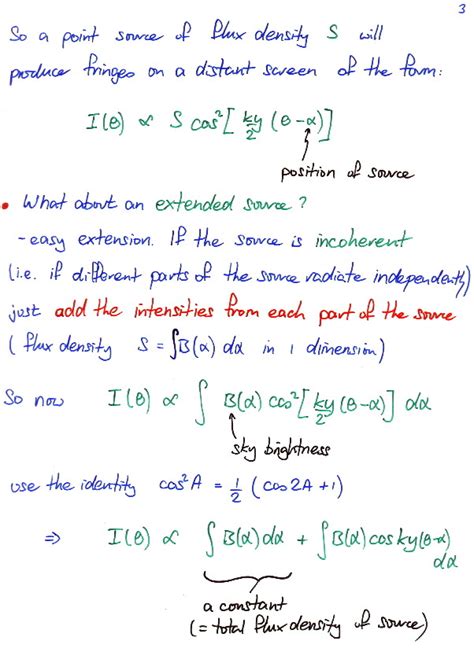 3
So a point source of flux density S will
produce fringes on a distant screen of the form:
I(θ) ∝ S cos²[ky/2 (θ-α)]
position of source
• What about an extended source?
- easy extension. If the source is incoherent
(i.e. if different parts of the source radiate independently)
just add the intensities from each part of the source
(flux density S = ∫B(α) dα in 1 dimension)
So now I(θ) ∝ ∫ B(α) cos²[ky/2 (θ-α)] dα
sky brightness
use the identity cos²A = 1/2 (cos2A + 1)
⇒ I(θ) ∝ ∫B(α)dα + ∫B(α) cos ky(θ-α) dα
a constant
(= total flux density of source)